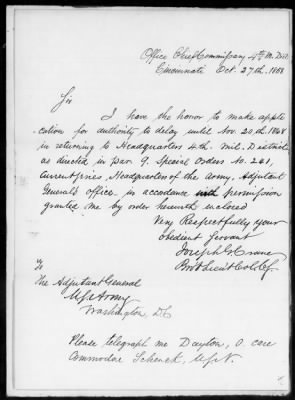 Office Chief Commissary 4th M. Dist
Cincinnati Oct. 27th. 1868
Sir
I have the honor to make appli
cation for authority to delay until Nov. 20th 1868
in returning to Headquarters 4th. Mil. District
as directed in Par. 9. Special Orders No. 241,
Current series, Headquarters of the Army, Adjutant
General's office - in accordance with permission
granted me by order herewith enclosed
Very Respectfully your
obedient Servant
Joseph G. Crane
Bvt Lieut Col
To
The Adjutant General
U.S. Army
Washington, DC
Please telegraph me Dayton, O. care
Commodore Schenck, U.S.N.